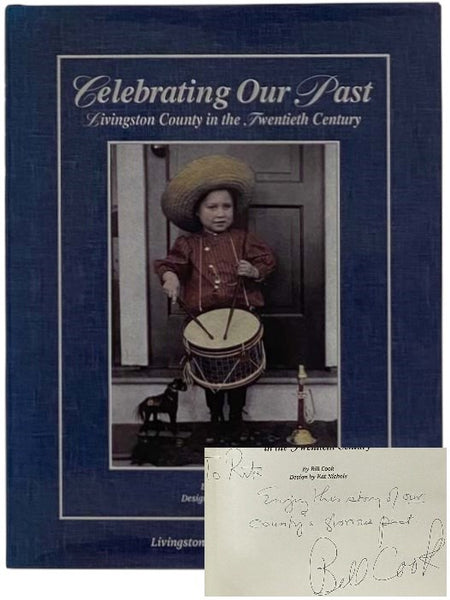 Celebrating Our Past
Livingston County in the Twentieth Century
Design
Livingston
in the Twentieth Century
By Bill Cook
Design by Kat Nichols
To
Enjoy this story of our
County's past
Bill Cook